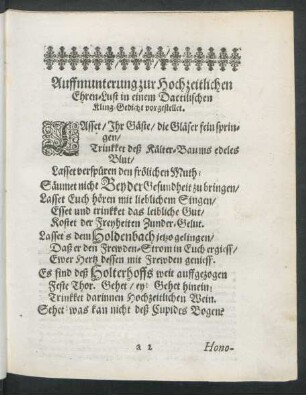 Auffmunterung zur Hochzeitlichen
Ehren-Lust in einem Dactilischen
Kling-Gedicht vorgestellet.
LAsset / Ihr Gäste / die Gläser fein sprin-
gen /
Trinkket deß Kälter-Baums edeles
Blut /
Lasset verspüren den frölichen Muth:
Säumet nicht Beyder Gesundheit zu bringen /
Lasset Euch hören mit lieblichem Singen /
Esset und trinkket das leibliche Gut /
Kostet der Freyheiten Zunder-Gelut.
Lasset s dem Holdenbach jetzo gelingen /
Daß er den Frewden-Strom in Euch ergiess /
Ewer Hertz dessen mit Frewden geniess.
Es sind deß Holterhoffs weit auffgezogen
Feste Thor. Gehet / ey! Gehet hinein:
Trinkket darinnen Hochzeitlichen Wein.
Sehet! was kan nicht deß Cupides Bogen?
a 2 Hono-